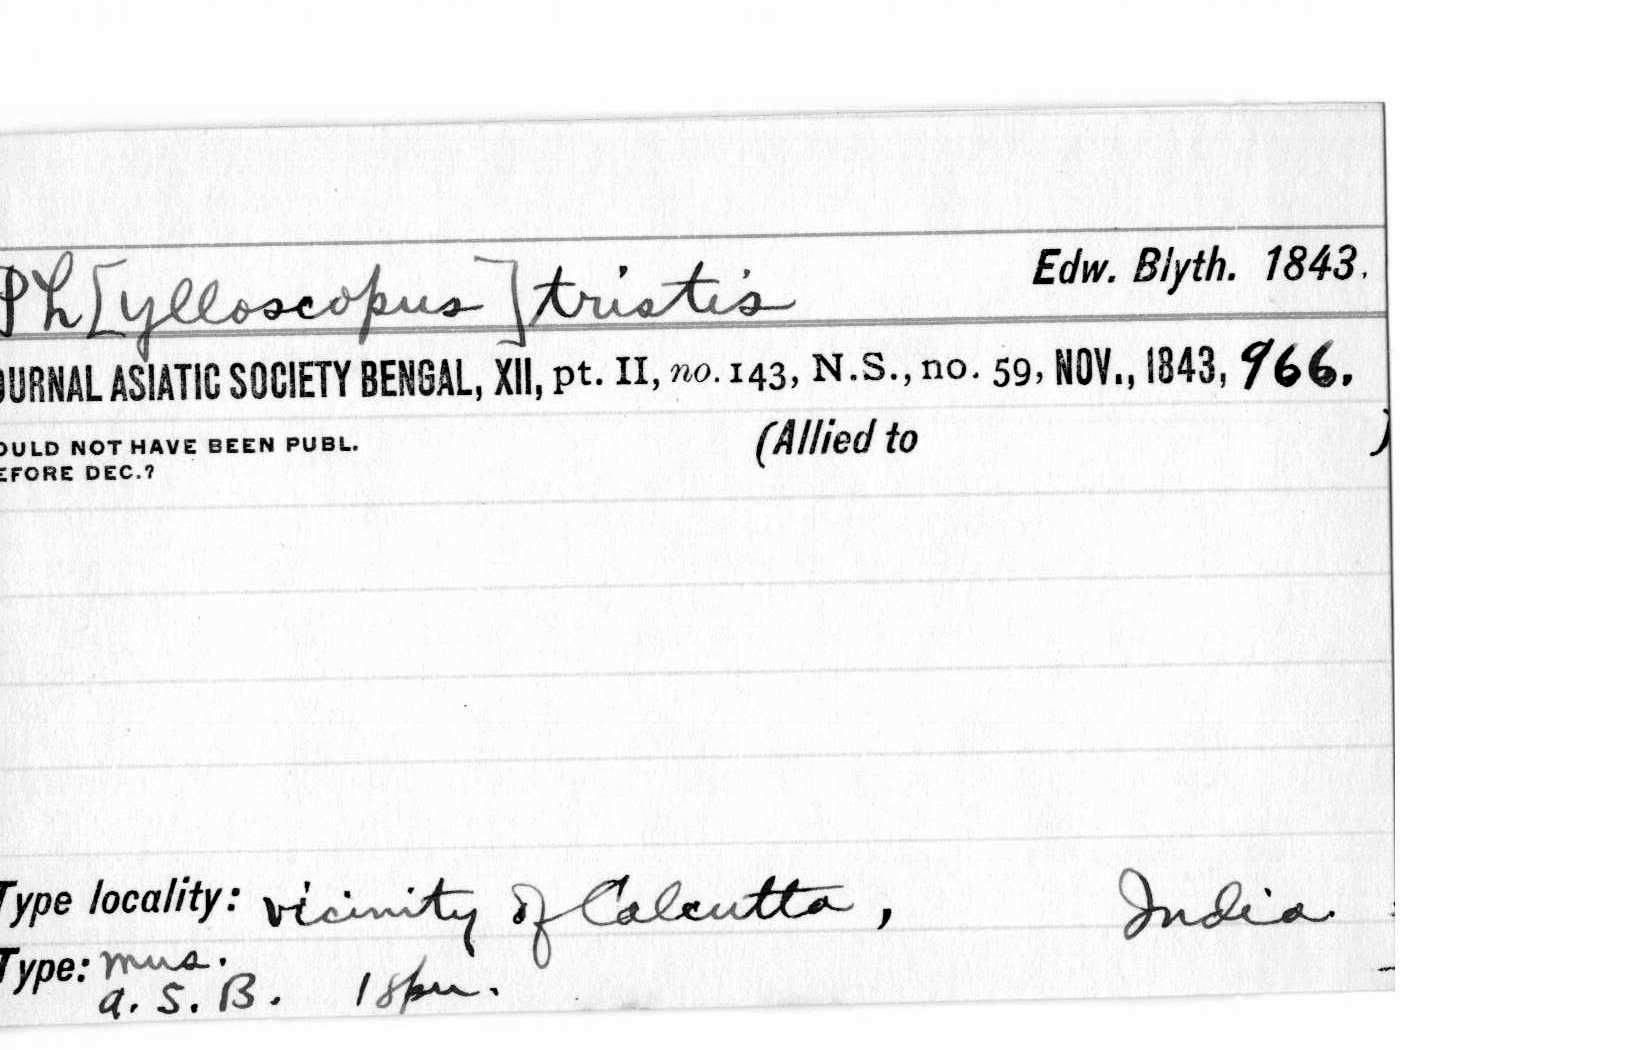 Edw. Blyth. 1843.
Ph[ylloscopus] tristis
OURNAL ASIATIC SOCIETY BENGAL, XII, pt. II, no. 143, N.S., no. 59, NOV., 1843, 966.
OULD NOT HAVE BEEN PUBL. (Allied to )
EFORE DEC.?
Type locality: vicinity of Calcutta, India
Type: mus.
a. S. B. 1